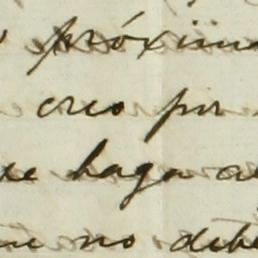 próxim
creo por
haga
no debe